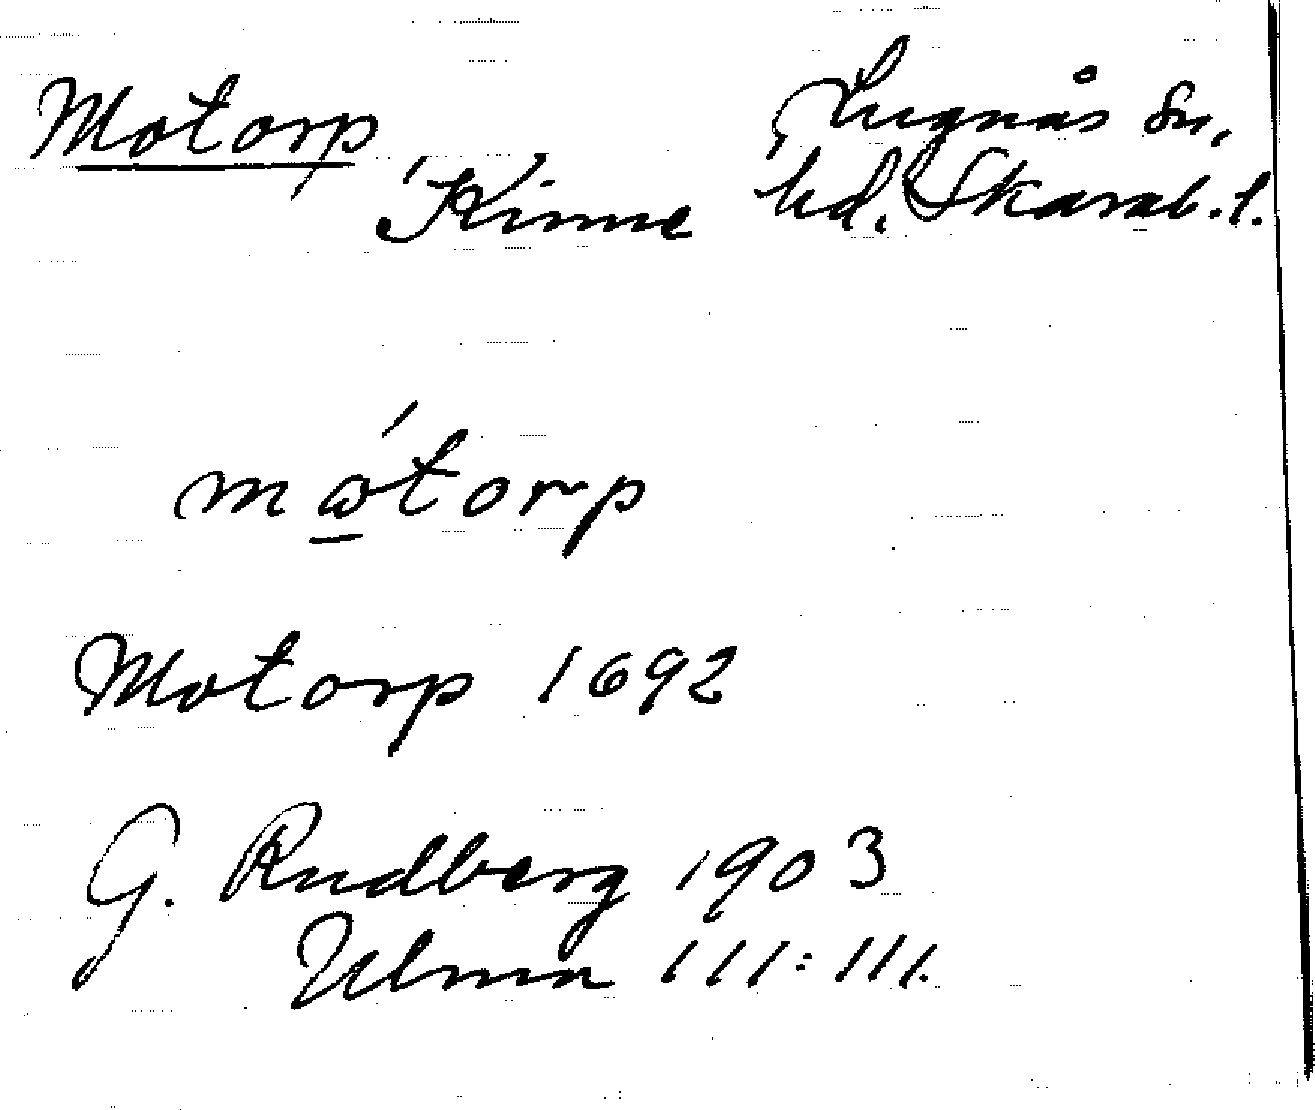 Motorp Lugnås sn,
Kinne hd. Skarab. l.
mώtorp
Motorp 1692
G. Rudberg 1903
Ulma 111:111.